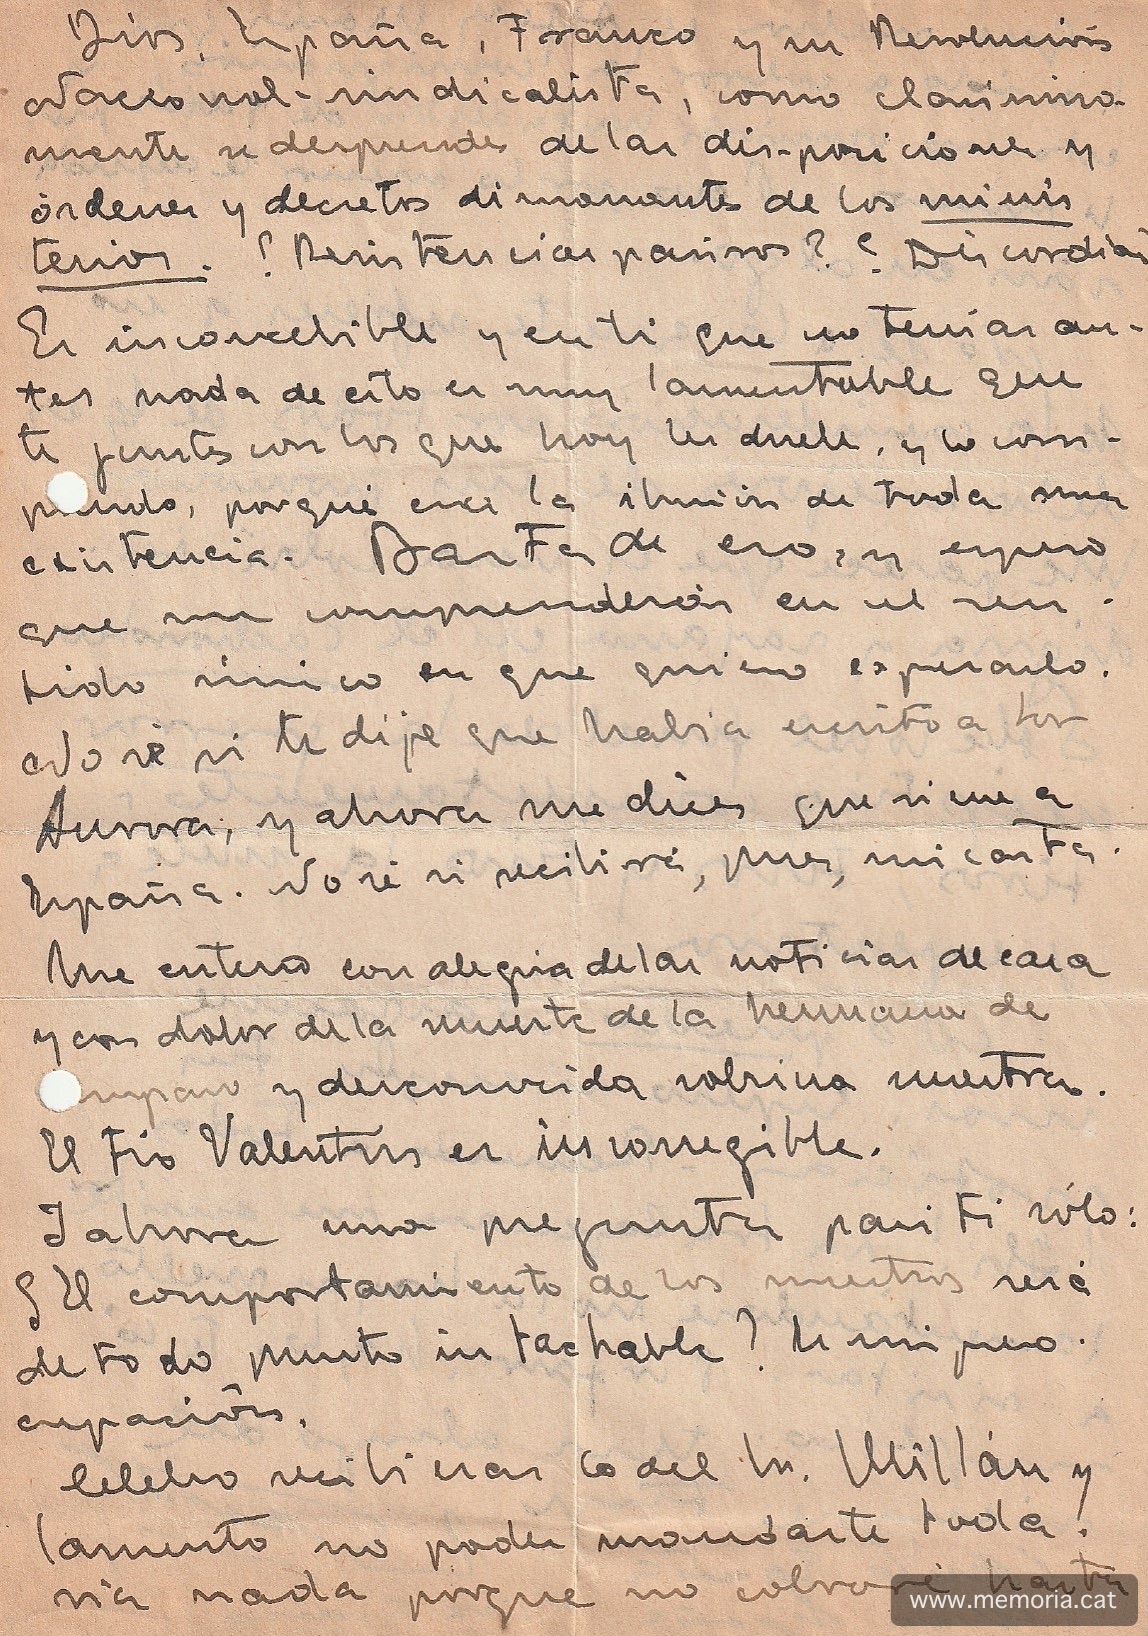 Dios, España, Franco y su Revolución
Nacional-sindicalista, como clarísima-
mente se desprende de las dis-posiciones y
órdenes y decretos dimanantes de los minis
terios. ¿Resistencias pasivas? ¿Discordias
Es inconcebible y en ti que no tenías an-
tes nada de esto es muy lamentable que
te juntes con los que hoy les duele, y lo com-
prendo, porque era la ilusión de toda una
existencia. Basta de eso, y espero
que me comprenderán en el sen-
tido único en que quiero expresarlo.
No sé si te dije que había escrito a los
Aurora, y ahora me dices que viene a
España. No sé si recibirá, pues, mi carta.
Me entero con alegría de las noticias de casa
y con dolor de la muerte de la hermana de
Amparo y desconocida sobrina nuestra.
El tío Valentín es incorregible.
Y ahora una pregunta para ti sólo:
¿El comportamiento de los nuestros será
de todo punto intachable? Es mi preo-
cupación.
Celebro recibieras lo del Sr. Millán y
lamento no poder mandarte toda-
vía nada porque no cobraré hasta
www.memoria.cat